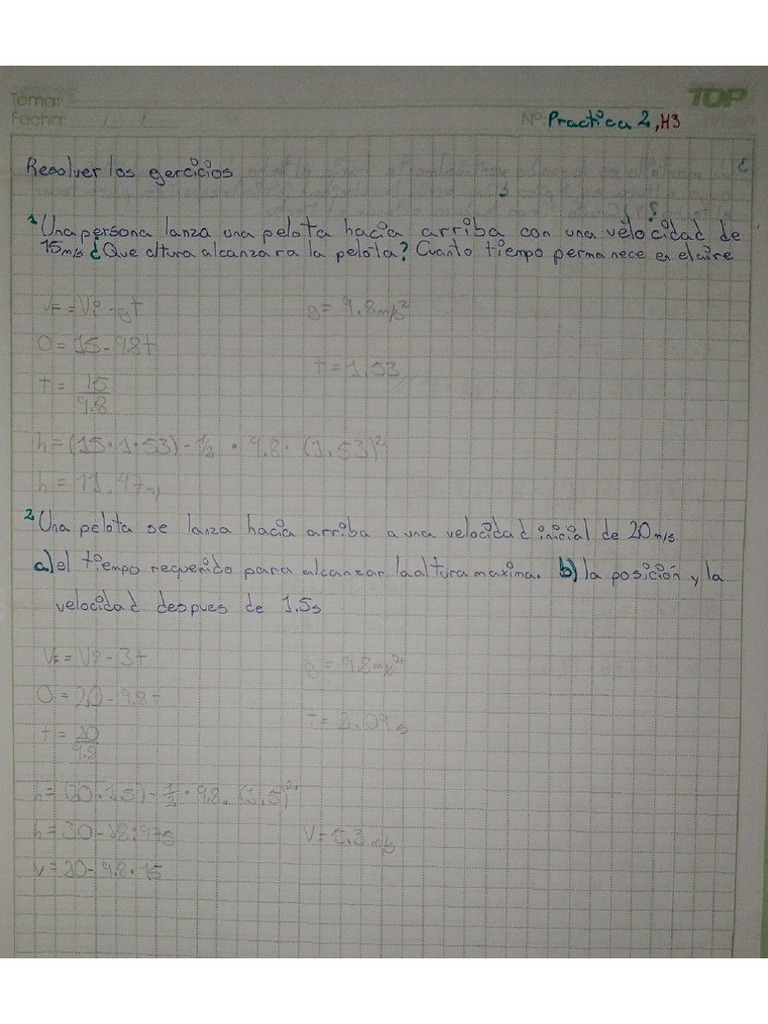 Tema:
TOP
Fecha: / /
Nº: Practica 2, H3
Resolver los gercicios
1 Una persona lanza una pelota hacia arriba con una velocidad de
15m/s ¿Que altura alcanzara la pelota? Cuanto tiempo permanece en el aire
VF = Vi - gt
g = 9.8m/s²
0 = 15 - 9.8t
t = 1.53
t = 15
9.8
h = (15 · 1 · 53) - 1/2 · 9.8 · (1.53)²
h = 11.47m
2 Una pelota se lanza hacia arriba a una velocidad inicial de 20m/s
a) el tiempo requerido para alcanzar la altura maxima. b) la posición y la
velocidad despues de 1.5s
VF = Vi - gt
g = 9.8m/s²
0 = 20 - 9.8t
t = 2.09s
t = 20
9.8
h = (20 · 1.5) - 1/2 · 9.8 · (1.5)²
h = 30 -
V = 5.3 m/s
v = 20 - 9.8 · 15